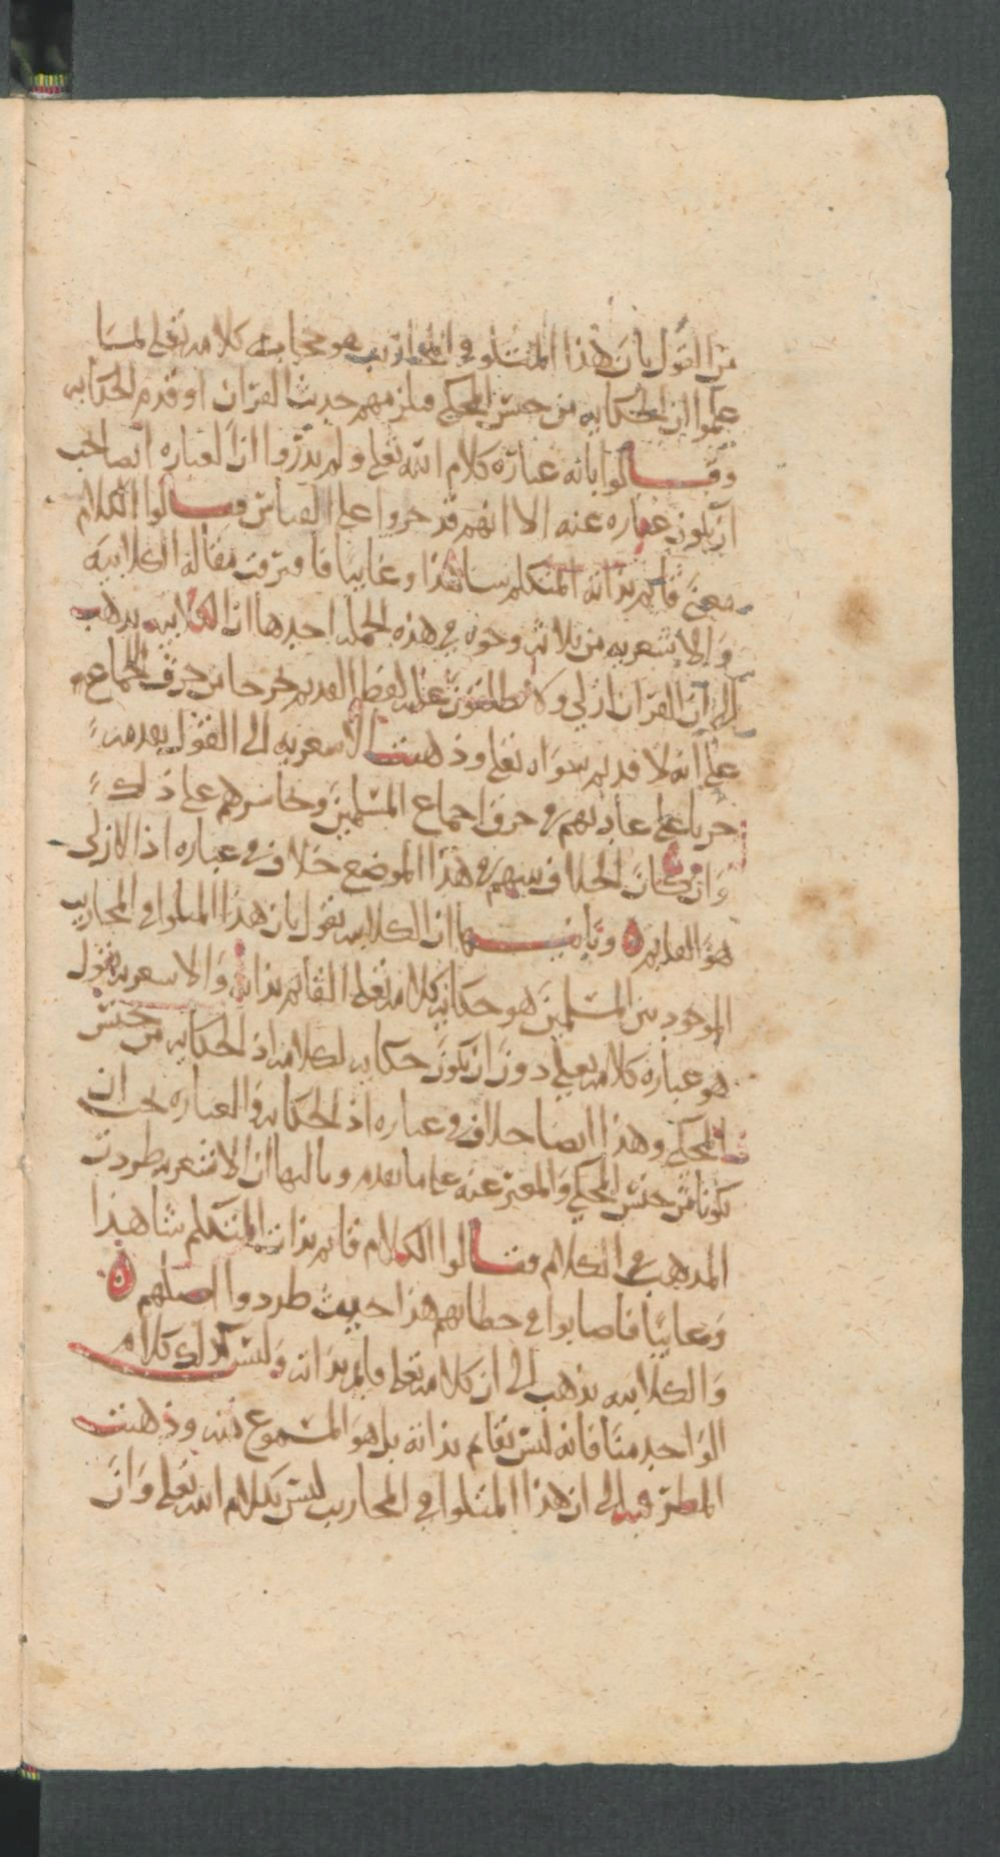 من القول بان هذا المتلو في المحاريب هو حكاية كلامه تعلى لما
علموا ان الحكايه من جنس المحكي فيلزمهم حدث القران او قدم الحكايه
وقالوا بانه عباره كلام الله تعلى ولم يدروا ان العباره ايضا يجب
ان يكون عنه الا انهم قد جروا على القياس وقالوا الكلام
معنى قايم بذات المتكلم شاهدا وغايبا فافترقت مقالة الكلابيه
والاشعريه من ثلاثه وجوه في هذه الجمله احدها ان الكلابيه يذهب
الى ان القران ازلي ولا يطلقون عليه لفظ القديم خرجا من خرق الاجماع
على انه لا قديم سواه تعلى وذهبت الاشعريه الى القول بقدمه
جريا على عادتهم في خرق اجماع المسلمين وخاسرهم على ذلك
وان كان الخلاف بينهم في هذا الموضع خلاف في عباره اذ الازلي
هو القديم وثانيها ان الكلابيه تقول بان هذا المتلو في المحاريب
الموجود بين المسلمين هو حكاية كلامه تعلى القايم بذاته والاشعريه تقول
هو عبارة كلامه تعلى دون ان يكون حكايه لكلامه اذ الحكايه من جنس
المحكي وهذا ايضا خلاف في عباره اذ الحكايه والعباره يجب ان
يكونا من جنس المحكي والمعبر عنه على ما تقدم وثالثها ان الاشعريه طردت
المذهب في الكلام فقالوا الكلام قايم بذات المتكلم شاهدا
وغايبا فاصابوا في خطابهم هذا حيث طردوا اصلهم
والكلابيه يذهب الى ان كلامه تعلى قايم بذاته وليس كذلك كلام
الواحد منا فانه ليس بقايم بذاته بل هو المسموع منه وذهبت
المطرفيه الى ان هذا المتلو في المحاريب ليس بكلام الله تعلى وان